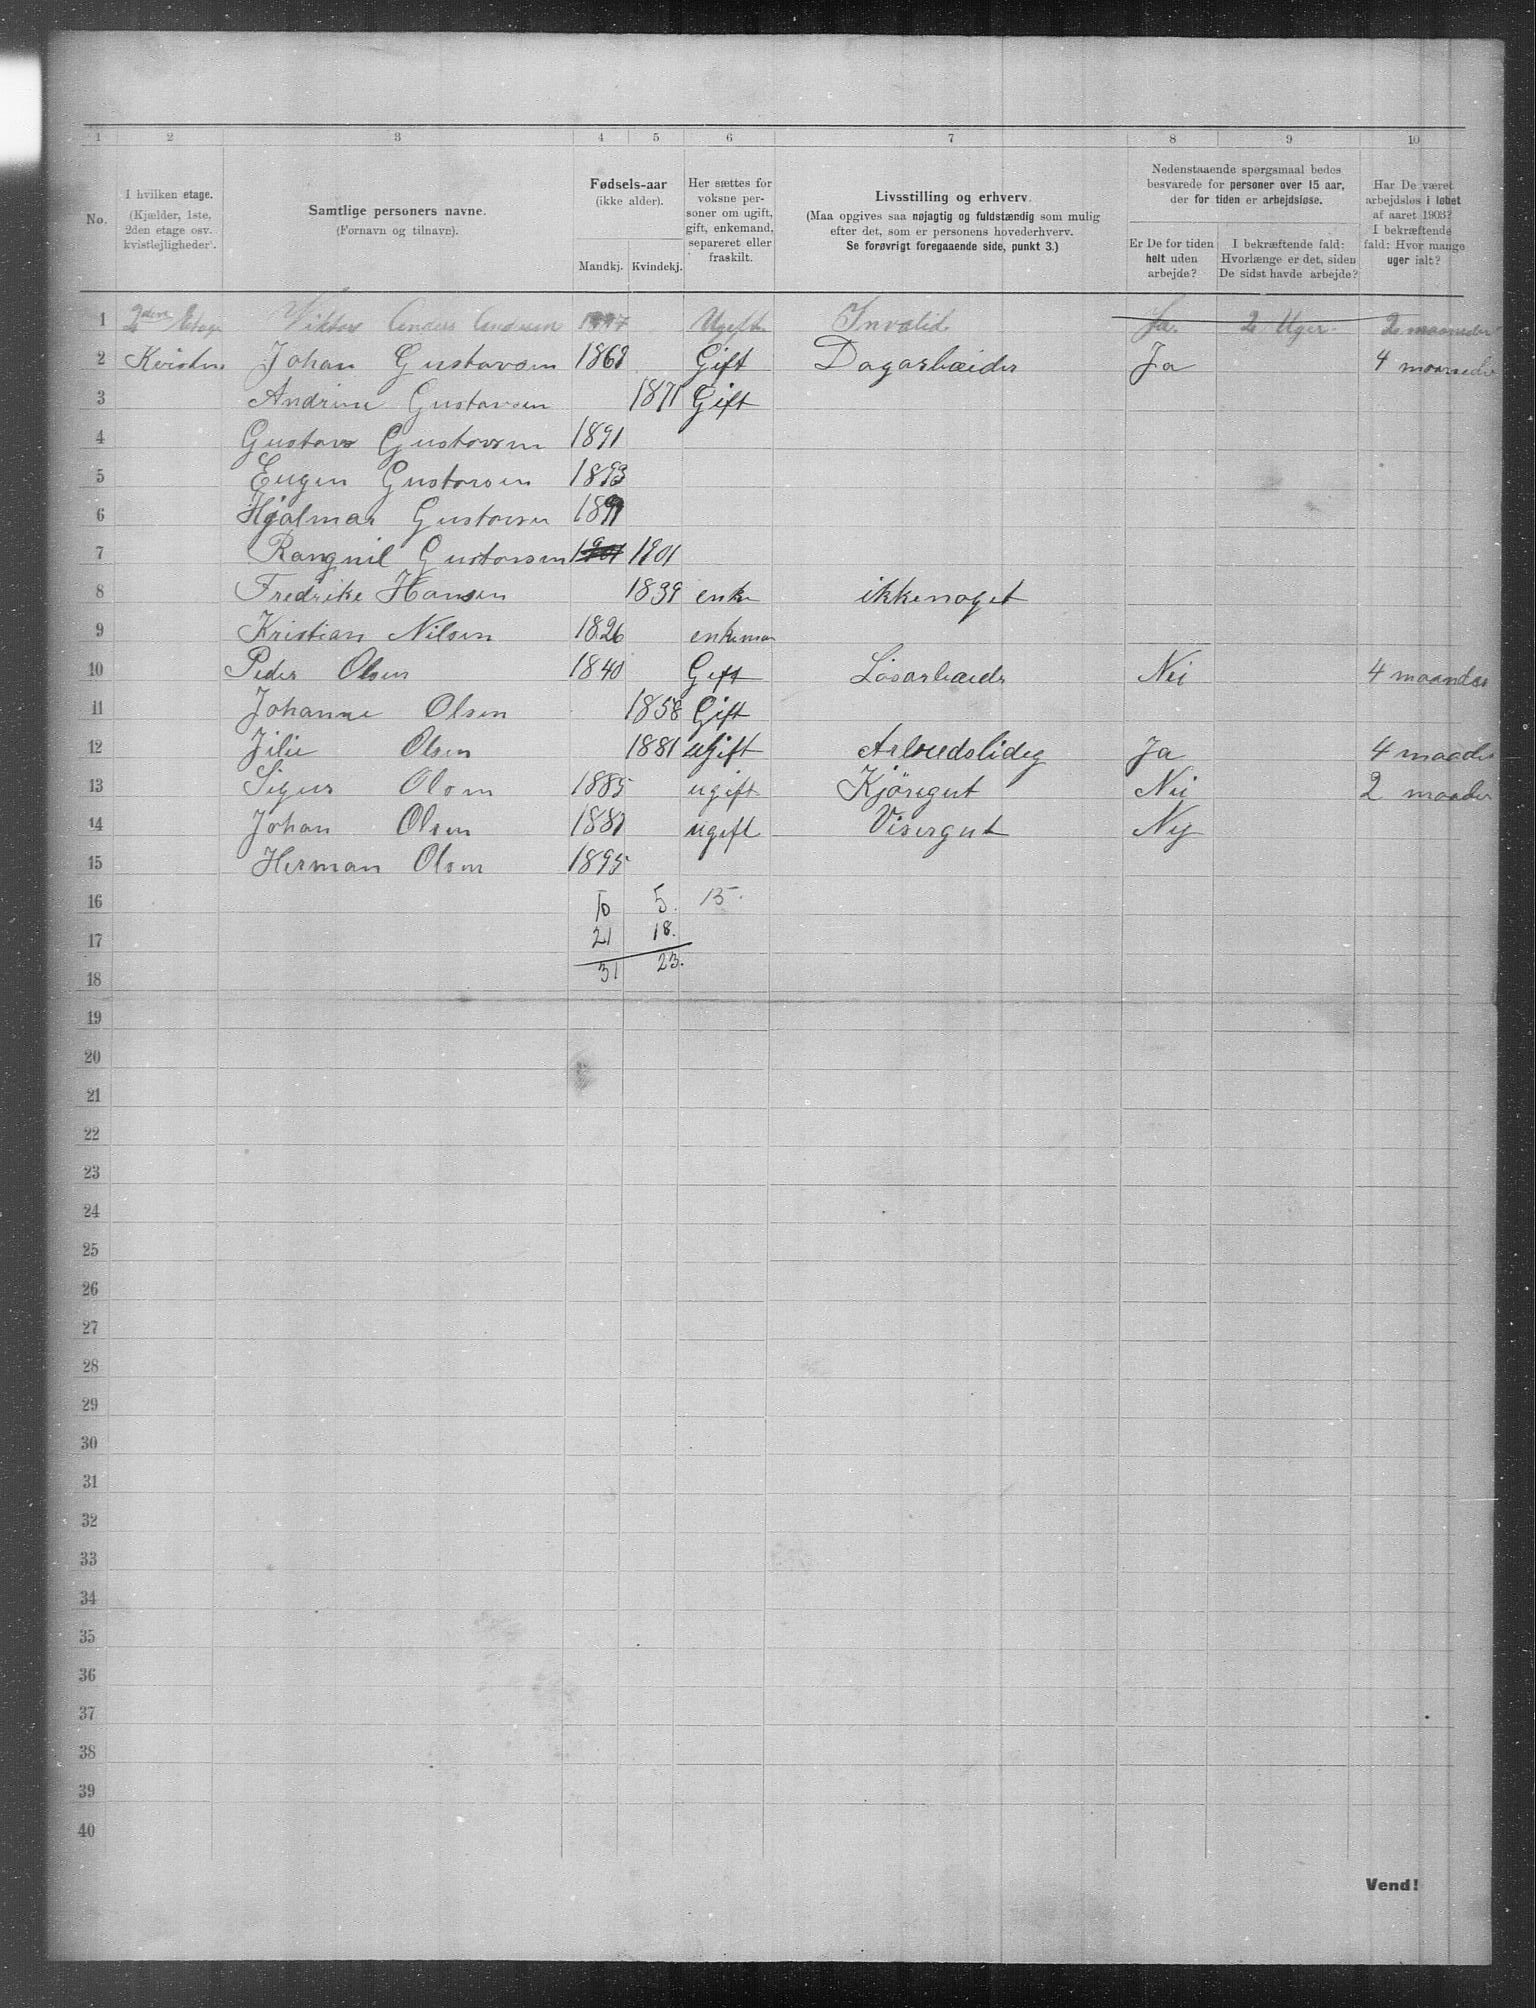 1 2 3 4 5 6 7 8 9 10
No.
I hvilken etage.
(Kjælder, 1ste,
2den etage osv.
kvistlejligheder).
Samtlige personers navne.
(Fornavn og tilnavn).
Fødsels-aar
(ikke alder).
Mandkj. Kvindekj.
Her sættes for
voksne per-
soner om ugift,
gift, enkemand,
separeret eller
fraskilt.
Livsstilling og erhverv.
(Maa opgives saa nøjagtig og fuldstændig som mulig
efter det, som er personens hovederhverv.
Se forøvrigt foregaaende side, punkt 3.)
Nedenstaaende spørgsmaal bedes
besvarede for personer over 15 aar,
der for tiden er arbejdsløse.
Er De for tiden
helt uden
arbejde?
I bekræftende fald:
Hvorlænge er det, siden
De sidst havde arbejde?
Har De været
arbejdsløs i løbet
af aaret 1903?
I bekræftende
fald: Hvor mange
uger ialt?
1 2den Etage Viktor Anders Andersen Ugift Invalid Ja 2 Uger 2 maaneder
2 Kvisten Johan Gustavsen 1868 Gift Dagarbæider Ja 4 maaneder
3 Andrine Gustavsen 1871 Gift
4 Gustav Gustavsen 1891
5 Eugen Gustavsen 1893
6 Hjalmar Gustavsen
7 Rangnil Gustavsen 1901 1901
8 Fredrike Hansen 1839 enke ikkenoget
9 Kristian Nilsen 1826 enkeman
10 Peder Olsen 1840 Gift Løsarbæide Nei 4 maander
11 Johanne Olsen 1858 Gift
12 Jilie Olsen 1881 ugift Arbeidslideg Ja 4 maader
13 Sigur Olsen 1885 ugift Kjöregut Nei 2 maader
14 Johan Olsen 1887 ugift Visergut Nej
15 Herman Olsen 1895
16 10 5. 15.
17 21 18.
18 31 23.
19
20
21
22
23
24
25
26
27
28
29
30
31
32
33
34
35
36
37
38
39
40
Vend!